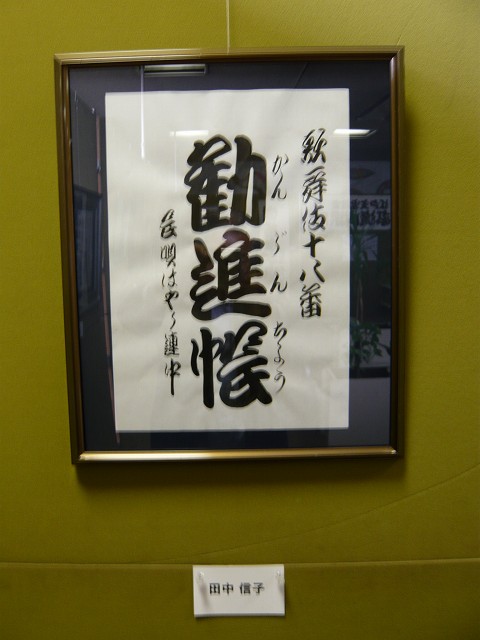 歌舞伎十八番
かんじんちょう
勧進帳
長唄はやし連中
田中 信子